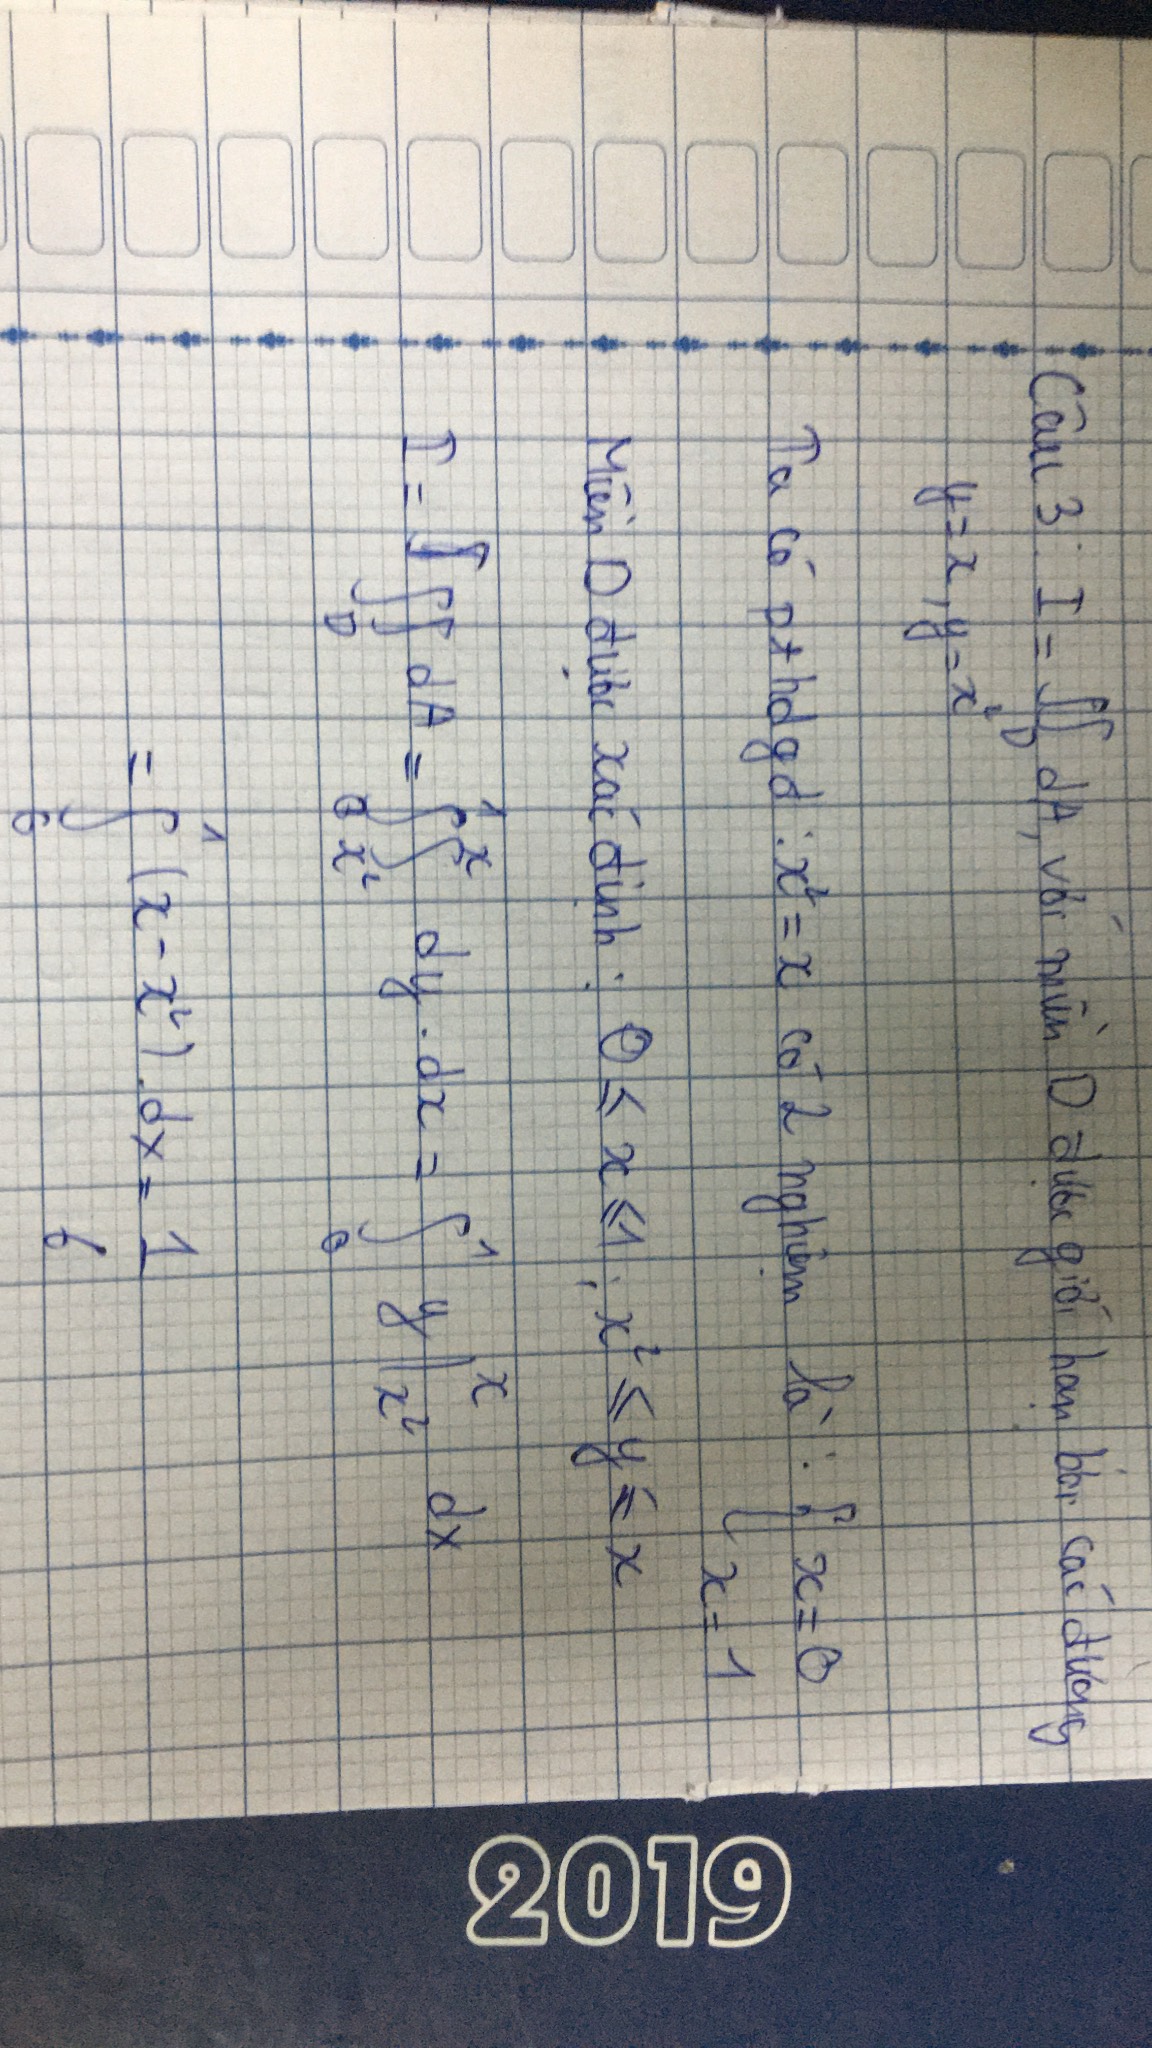 Câu 3: I = ∬_D dA, với miền D được giới hạn bởi các đường
y = x, y = x²
Ta có pt hdgd: x² = x có 2 nghiệm là: [ x = 0
x = 1
Miền D được xác định: 0 ≤ x ≤ 1; x² ≤ y ≤ x
I = ∬_D dA = ∫_0^1 ∫_{x²}^x dy.dx = ∫_0^1 y |_{x²}^x dx
= ∫_0^1 (x - x²).dx = 1/6
2019